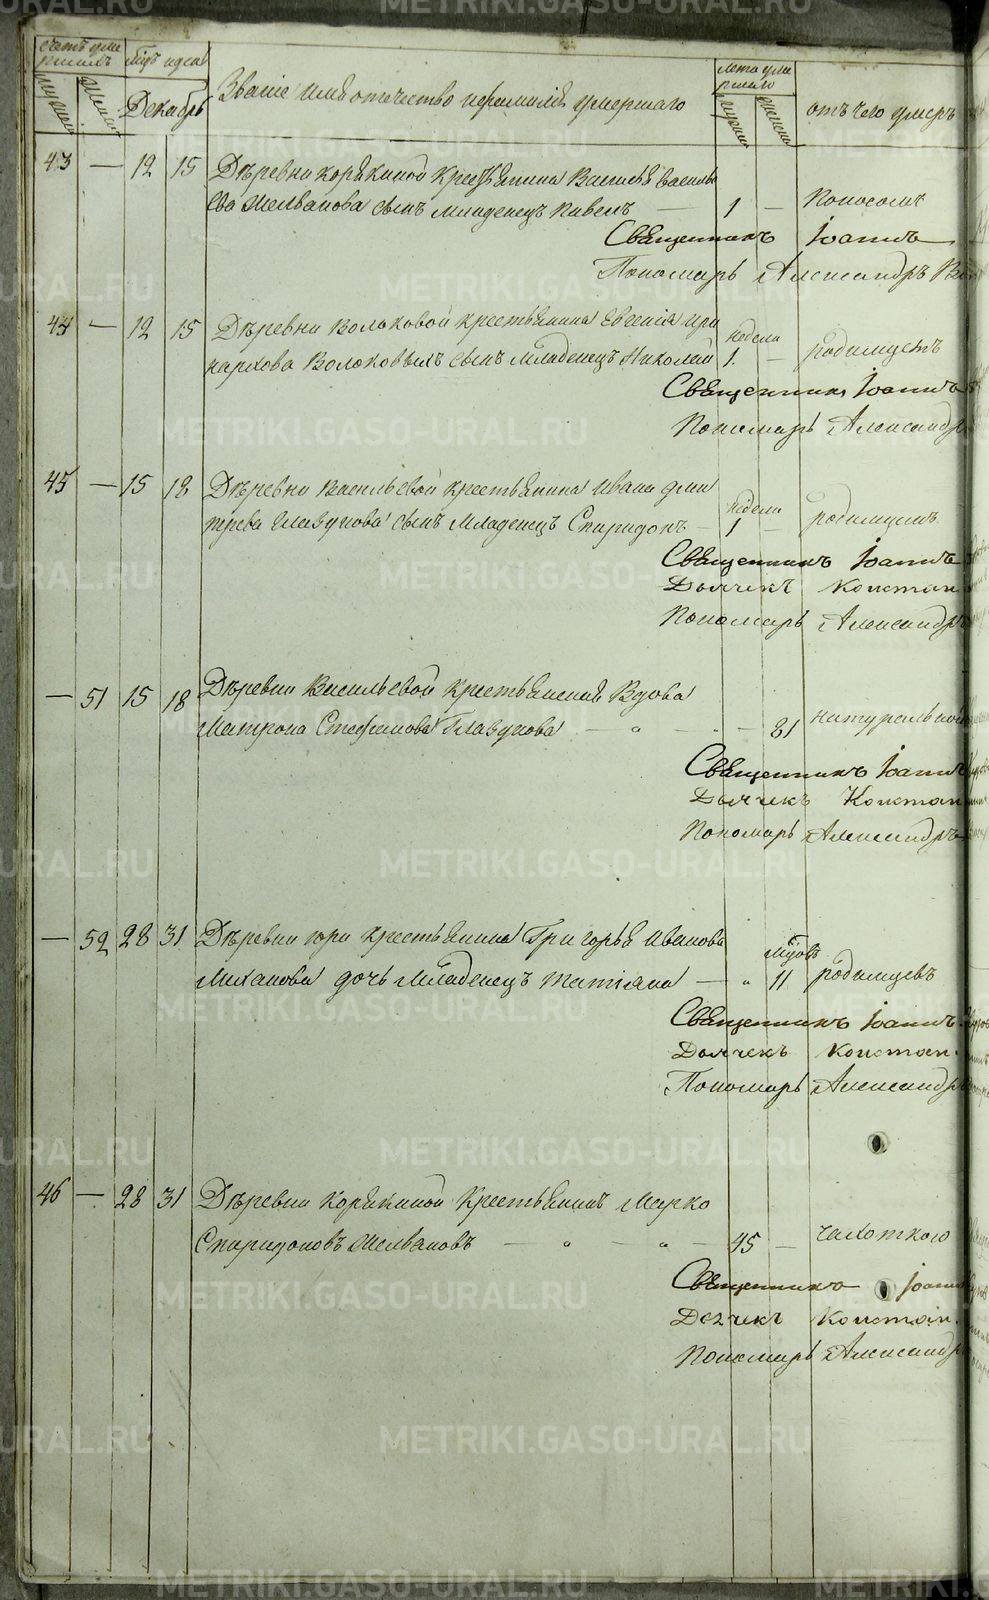 счетъ уме
ршихъ
мѣц. и дни
Декабрь
Званіе имя отечество и фамилія умершаго
лета уме
ршаго
отъ чего умеръ
43 — 12 15 Дѣревни Корякиной Крестьянина Василья Василье
ва Желванова сынъ младенецъ Павелъ — 1 — Поносомъ
Священникъ Іоаннъ
Пономарь Александръ
44 — 12 15 Дѣревни Волоковой крестьянина Евгенія Ири
нархова Волоковыхъ сынъ младенецъ Николай неделя 1. — родимцемъ
Священникъ Іоаннъ
Пономарь Александръ
45 — 15 18 Дѣревни Васильевой крестьянина Ивана Дми
трева Глазунова сынъ младенецъ Спиридонъ — неделя 1 — родимцемъ
Священникъ Іоаннъ
Дьячекъ Констан
Пономарь Александръ
— 51 15 18 Дѣревни Васильевой Крестьянская Вдова
Матрона Стефанова Глазунова — „ — — 81 натуральной
Священникъ Іоаннъ
Дьячекъ Констан
Пономарь Александръ
— 52 28 31 Дѣревни гори крестьянина Григорья Иванова
Миханова дочь младенецъ Татіяна — „ 11 родимцевъ
Священникъ Іоаннъ
Дьячекъ Констан.
Пономарь Александръ
46 — 28 31 Дѣревни Корякиной Крестьянинъ Марко
Спиридоновъ Желвановъ — „ — „ — 45 — чахоткою
Священникъ Іоаннъ
Дьячекъ Констан.
Пономарь Александръ
METRIKI.GASO-URAL.RU